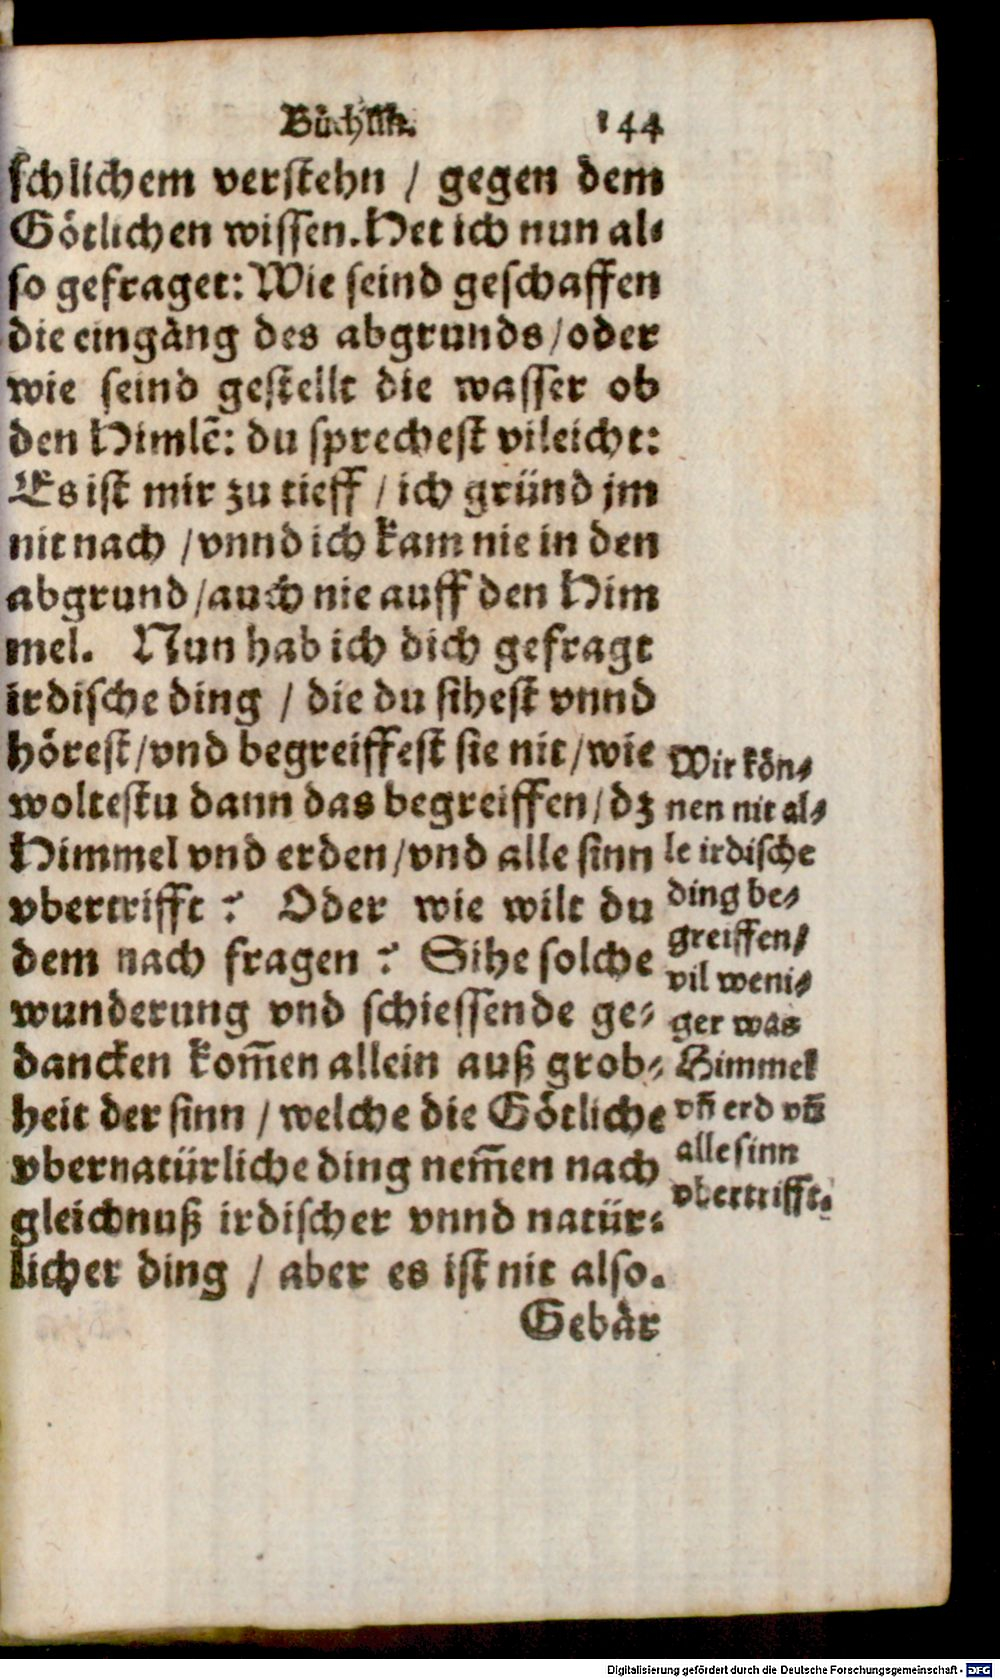 Büchlin. 144
schlichem verstehn / gegen dem
Götlichen wissen. Het ich nun al⸗
so gefraget: Wie seind geschaffen
die eingäng des abgrunds / oder
wie seind gestellt die wasser ob
den Himlẽ: du sprechest vileicht:
Es ist mir zu tieff / ich gründ jm
nit nach / vnnd ich kam nie in den
abgrund / auch nie auff den Him
mel. Nun hab ich dich gefragt
irdische ding / die du sihest vnnd
hörest / vnd begreiffest sie nit / wie
woltestu dann das begreiffen / dz
Himmel vnd erden / vnd alle sinn
vbertrifft? Oder wie wilt du
dem nach fragen? Sihe solche
wunderung vnd schiessende ge⸗
dancken kom̃en allein auß grob⸗
heit der sinn / welche die Götliche
vbernatürliche ding nem̃en nach
gleichnuß irdischer vnnd natür⸗
licher ding / aber es ist nit also.
Gebär
Wir kön⸗
nen nit al⸗
le irdische
ding be⸗
greiffen /
vil weni⸗
ger was
Himmel
vñ erd vñ
alle sinn
vbertrifft.
Digitalisierung gefördert durch die Deutsche Forschungsgemeinschaft - DFG